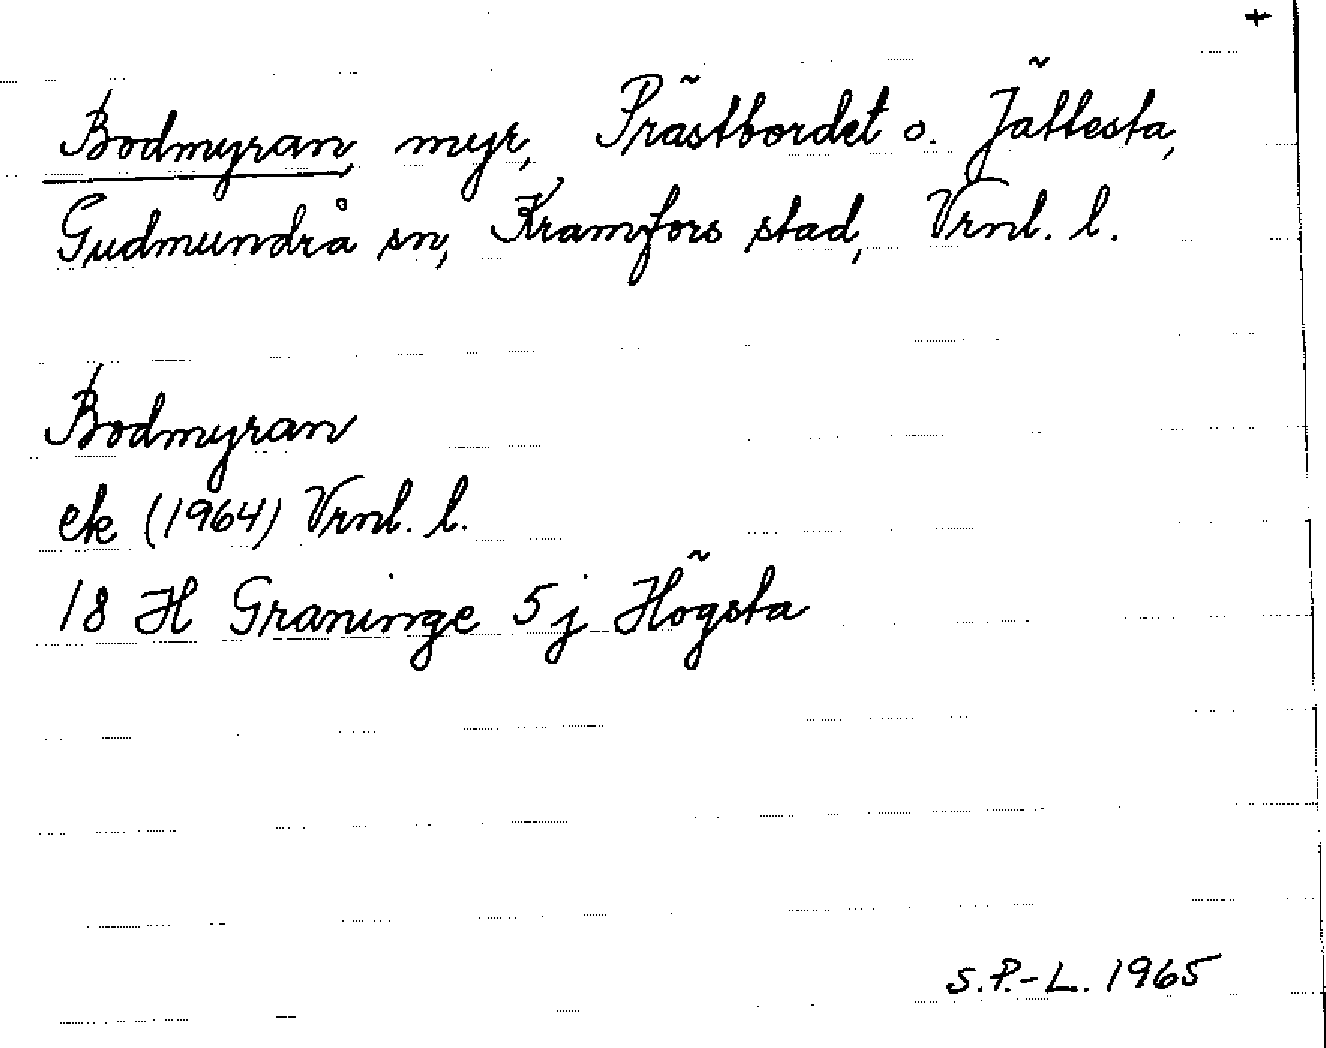 +
Bodmyran, myr, Prästbordet o. Jättesta,
Gudmundrå sn, Kramfors stad, Vrnl. l.
Bodmyran
ek (1964) Vrnl. l.
18 H Graninge 5 j Högsta
S.P.-L. 1965